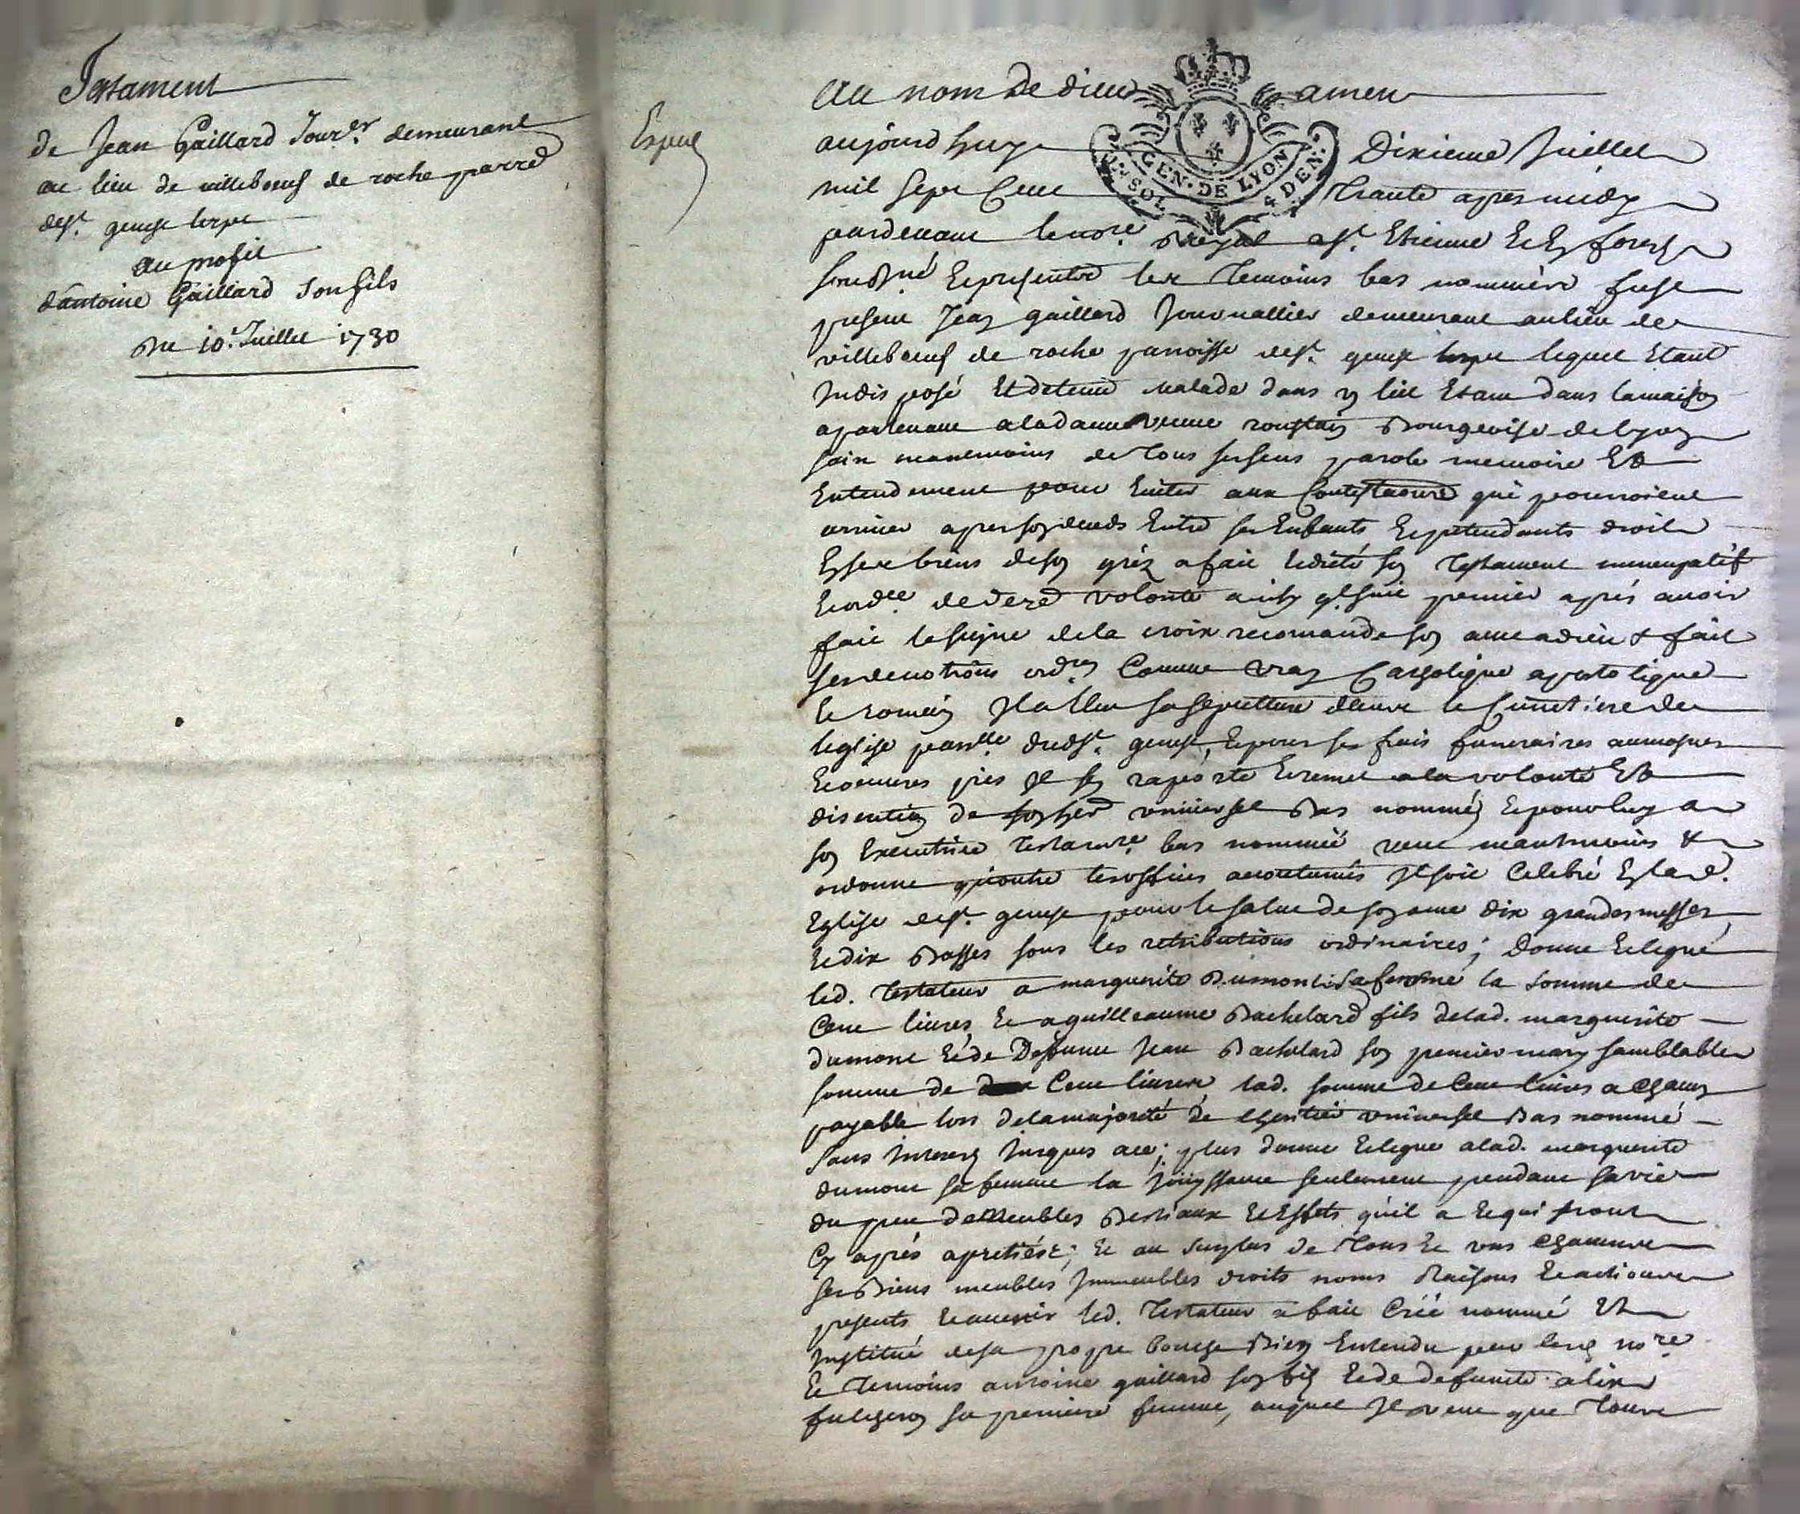 Testament
de Jean Gaillard Jour.er demeurant
au lieu de villeboeuf de roche parre
de st. genest lerpt
au profit
d'antoine Gaillard son fils
Du 10.e Juillet 1730
Expédié
Au nom de dieu amen
aujourdhuy Dixieme Juillet
mil sept Cent Trante apres midy
GEN. DE LYON
SOL. 4 DEN.
pardevant le no.re Royal a st. Etienne En forest
sousné Et presents les Temoins bas nommés fust
present Jean gaillard Journallier demeurant au lieu de
villeboeuf de roche paroisse de st. genest lerpt lequel Etant
Indisposé Et detenu malade dans un lict Etant dans la maison
apartenant a la dame veuve Bourgeoise de lyon
sain neanmoins de Tous ses sens parole memoire Et
Entendement pour Eviter aux Contestations qui pourroient
arriver apres son deceds Entre ses Enfants Et pretendants droit
En ses biens de son gréz a fait Et dicté son Testament nuncupatif
Et ord.ce de der.e volonté ainsy q.l suit premier aprés avoir
fait le signe de la croix recomandé son ame a dieu & fait
ses devotions ord.res Comme vray Catholique apostolique
Et romain Il a Elu sa sepulture dans le Cimetiere de
leglise par.lle dud. st. genest, Et pour ses frais funeraires aumosnes
Et oeuvres pies Il s'en raporte Et remet a la volonté Et
discretion de son her.er universel Bas nommé Et pour luy a
son Executrice testament.re bas nommée veut neantmoins &
ordonne qu'outre les offices acoutumés Il soit Celebré En lad.
Eglise de st. genest pour le salut de son ame dix grandes messes
Et dix Basses sous les retributions ordinaires; donne Et legue
led. Testateur a marguerite Dumont sa femme la somme de
Cent livres, Et a guilleaume Bachelard fils de lad. marguerite
dumont Et de Deffunt Jean Bachelard son premier mary semblable
somme de Cent livres lad. somme de Cent livres a chacun
payable lors de la majorité de lheritier universel Bas nommé
sans Interest Jusques a ce; plus donne Et legue a lad. marguerite
dumont sa femme la Jouyssance seulement pendant sa vie
du peu de Meubles Bestiaux Et Effets qu'il a Et qui seront
Cy aprés apretiés; Et au surplus de Tous Et uns chacuns
ses Biens meubles Immeubles droits noms Raisons Et actions
presents Et avenir led. Testateur a fait Créé nommé Et
Institué de sa propre bouche Bien Entendu par led. no.re
Et Temoins antoine gaillard son fils Et de defunte alix
sa premiere femme, auquel Il veut que Toute